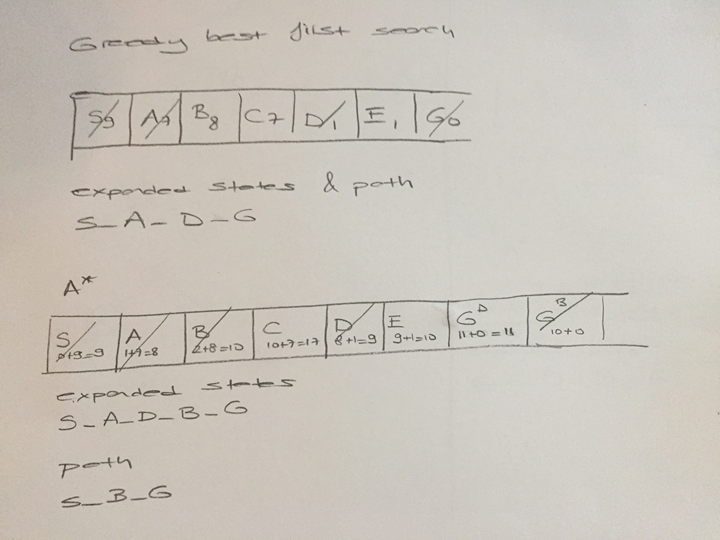 Greedy best first search
S9 A7 B8 C7 D1 E1 G0
expanded states & path
S_A_D_G
A*
S A B C D E G D G B
0+9=9 1+7=8 2+8=10 10+7=17 8+1=9 9+1=10 11+0=11 10+0
expanded states
S_A_D_B_G
path
S_B_G